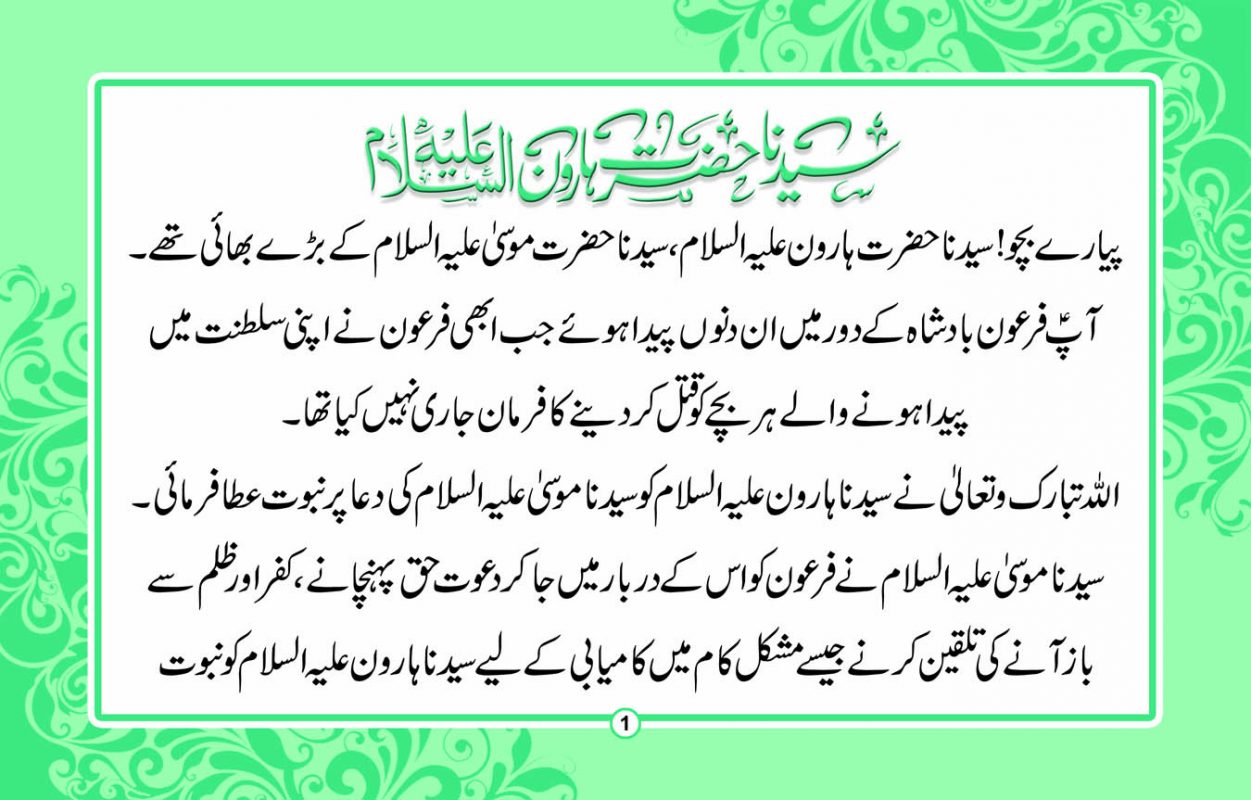 سیدنا حضرت ہارون علیہ السلام
پیارے بچو! سیدنا حضرت ہارون علیہ السلام، سیدنا حضرت موسیٰ علیہ السلام کے بڑے بھائی تھے۔
آپؑ فرعون بادشاہ کے دور میں ان دنوں پیدا ہوئے جب ابھی فرعون نے اپنی سلطنت میں
پیدا ہونے والے ہر بچے کو قتل کر دینے کا فرمان جاری نہیں کیا تھا۔
اللہ تبارک وتعالیٰ نے سیدنا ہارون علیہ السلام کو سیدنا موسیٰ علیہ السلام کی دعا پر نبوت عطا فرمائی۔
سیدنا موسیٰ علیہ السلام نے فرعون کو اس کے دربار میں جا کر دعوت حق پہنچانے، کفر اور ظلم سے
باز آنے کی تلقین کرنے جیسے مشکل کام میں کامیابی کے لیے سیدنا ہارون علیہ السلام کو نبوت
1